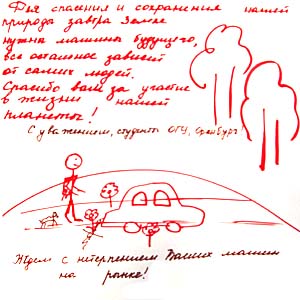 Для спасения и сохранения нашей
природы завтра Земле
нужна машина будущего,
все остальное зависит
от самих людей.
Спасибо вам за участие
в жизни нашей
планеты!
С уважением, студенты ОГУ, Оренбург!
Ждем с нетерпением Ваших машин
на рынке!